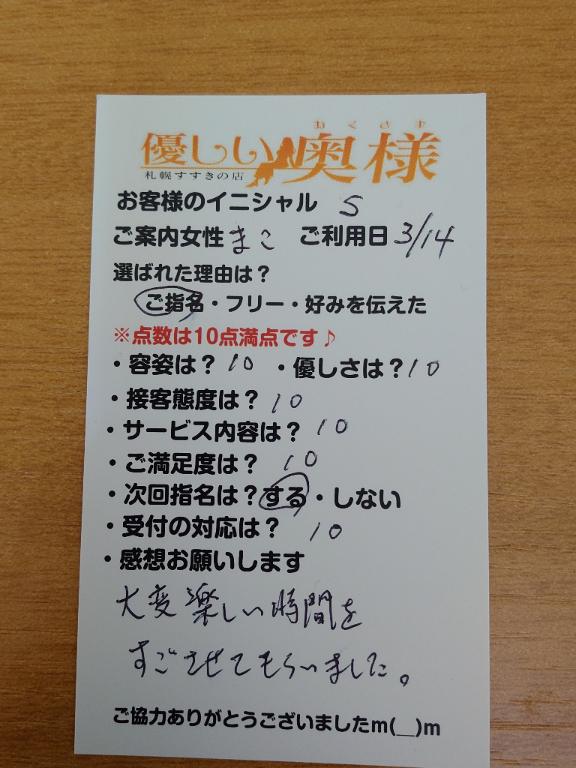 おくさま
優しい奥様
札幌すすきの店
お客様のイニシャル S
ご案内女性 まこ ご利用日 3/14
選ばれた理由は？
ご指名・フリー・好みを伝えた
※点数は10点満点です♪
・容姿は？ 10 ・優しさは？ 10
・接客態度は？ 10
・サービス内容は？ 10
・ご満足度は？ 10
・次回指名は？する・しない
・受付の対応は？ 10
・感想お願いします
大変楽しい時間を
すごさせてもらいました。
ご協力ありがとうございましたm(__)m